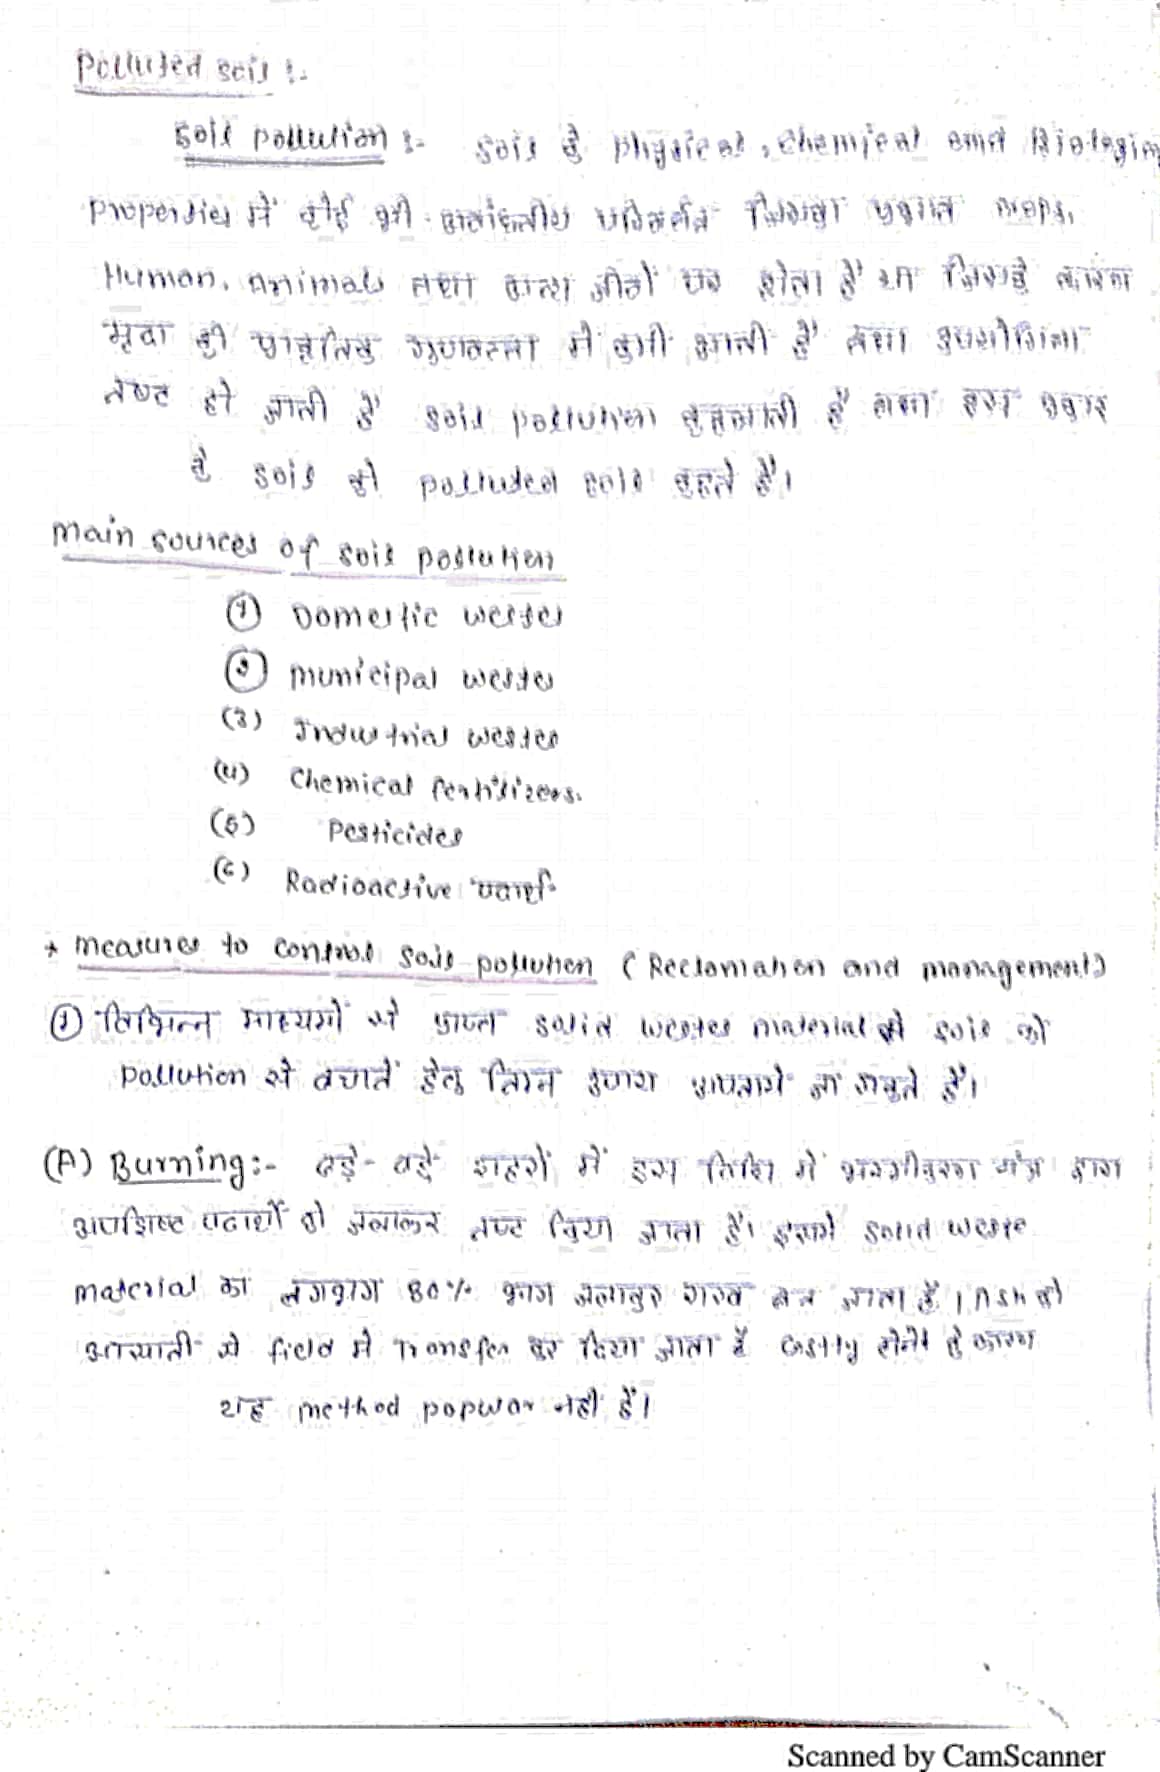 Polluted soil :-
Soil pollution :- Soil के physical, chemical and Biologic
Properties में कोई भी अवांछनीय परिवर्तन जिसका प्रभाव crops,
Human, Animals तथा अन्य जीवों पर होता है या जिसके कारण
मृदा की प्राकृतिक गुणवत्ता में कमी आती है तथा उपयोगिता
नष्ट हो जाती है soil pollution कहलाती है तथा इस प्रकार
के soil को polluted soil कहते है।
main sources of soil pollution
(1) Domestic westes
(2) municipal westes
(3) Industrial westes
(4) Chemical fertilizers.
(5) Pesticides
(6) Radioactive पदार्थ
* measures to control soil pollution (Reclamation and management)
(1) विभिन्न माध्यमों से प्राप्त solid westes material से soil को
pollution से बचाने हेतु निम्न उपाय अपनाये जा सकते है।
(A) Burning:- बड़े-बड़े शहरों में इस विधि में भस्मीकरण यंत्र द्वारा
अपशिष्ट पदार्थों को जलाकर नष्ट किया जाता है। इसमें solid weste
material का लगभग 80% भाग जलाकर राख बन जाता है। Ash को
आसानी से field में Transfer कर दिया जाता है costly होने के कारण
यह method popular नहीं है।
Scanned by CamScanner